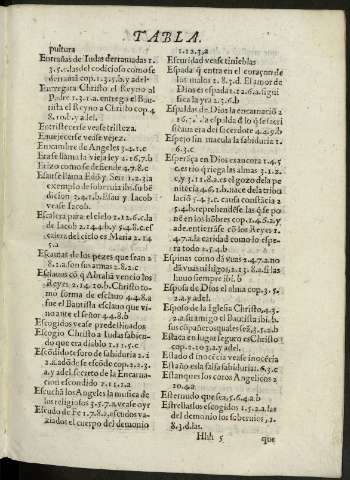 TABLA.
pultura
Entrañas de Iudas derramadas 1.
3.5.c. las del codicioso como se
derramā cop. 1.3.5.b. y adel.
Entregara Christo el Reyno al
Padre 1.3.1.a. entrego el Bau-
tista el Reyno a Christo cop. 4
8. rod. y adel.
Entristecerse vease tristeza.
Enuejecerse vease vejez.
Enxambre de Angeles 3.4.1.c
Era se llama la vieja ley 4.16.7.b
Erizo como se defiende 4.7.8.c
Esau se llama Edō y Seir 1.2.2.a
exemplo de soberuia ibi. su bē
dicion 2.4.1.b. Esau y Iacob
vease Iacob.
Escalera para el cielo 2.12.6.c. la
de Iacob 2.14.4.b. y 5.4.8.c. es
calera del cielo es Maria 2.14
5.a
Escamas de los pezes que sean 2
8.2.a. son sus armas 2.8.2.c
Esclauos cō q̄ Abrahā vencio los
Reyes 2.14.20.b. Christo to-
mo forma de esclauo 4.4.8.a
fue el Bautista esclauo que vi-
no ante el señor 4.4.8.b
Escogidos vease predestinados
Escogio Christo a Iudas sabien-
do que era diablo 1.11.5.c
Escōdidos tesoro de sabiduria 2.2
2.a. adōde se escōde cop. 2.2.3.
a. y adel. secreto de la Encarna-
cion escondido 2.11.1.a
Escuchā los Angeles la musica de
los religiosos 3.5.7.a. vease oyr
Escudo de Fe 1.7.8.a. escudos va-
ziados el cuerpo del demonio
1.12.3.a
Escuridad vease tinieblas
Espada q̄ entra en el coraçon de
los malos 2.8.3.d. El amor de
Dios es espada 1.12.6.a. signi
fica la yra 2.3.6.b
Espaldas de Dios la encarnació 2
se cri
ficaua era del sacerdote 4.2.9.b
Espejo sin macula la sabiduria 1.
6.3.c
Esperāça en Dios es ancora 1.4.5
c. es rio q̄ riega las almas 3.1.2.
la tribu
laciō
5.4.8. reprehendēse
nē en los hōbres cop. 1.4.6.a. y
ade. entierrāse cō los Reyes 1.
4.7.a. la caridad como lo espe-
ra todo 2.5.4.b
Espinas como dā vuas 2.4.7.a. no
dā vuas ni higos, 2.13.8.a. si las
huuo siempre ibi. b
Esposa de Dios el alma cop. 3.5.
2.a. y adel.
Esposo de la Iglesia Christo, 4.3.
2.a. su amigo el Bautista ibi. b.
sus cōpañeros quales seā, 3.5.2.b
Estaca en lugar seguro es Christo
cop. 2.10.3.a. y adel.
Estado d inocēcia vease inocēcia
Estaño es la falsa sabiduria 1.6.3.c
Estanques los coros Angelicos 2
10.4.a
Esternudo que sea, 5.6.4.a.b
Estrellas los escogidos 1.5.2.a. las
del demonio los soberuios, 1.
8.3.d. las.
Hhh 5
que